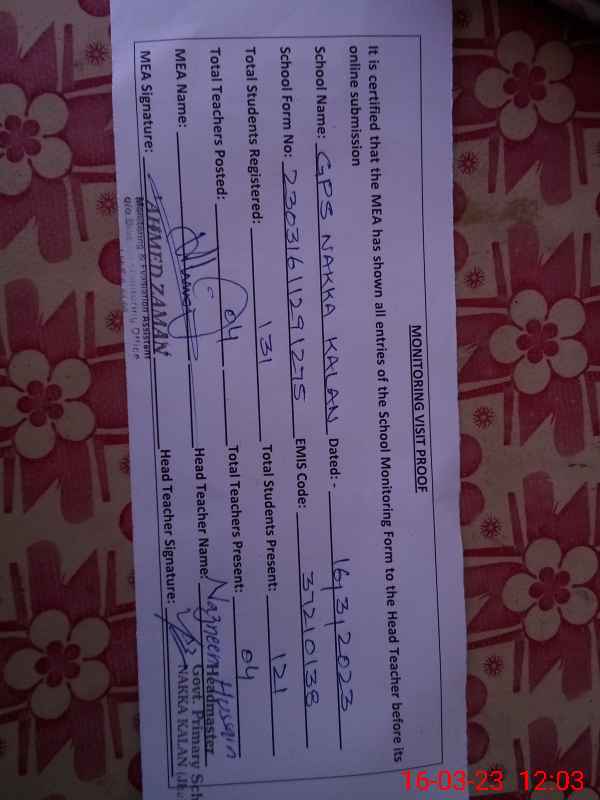 MONITORING VISIT PROOF
It is certified that the MEA has shown all entries of the School Monitoring Form to the Head Teacher before its
online submission
School Name: GPS NAKKA KALAN Dated: - 16/3/2023
School Form No: 23031611291275 EMIS Code: 37210138
Total Students Registered: 131 Total Students Present: 121
Total Teachers Posted: 04 Total Teachers Present: 04
MEA Name: Head Teacher Name: Nazneem Hussain
MEA Signature: Head Teacher Signature:
AHMED ZAMAN
Monitoring & Evaluation Assistant
Office
Headmaster
Govt. Primary Sch
NAKKA KALAN
16-03-23 12:03